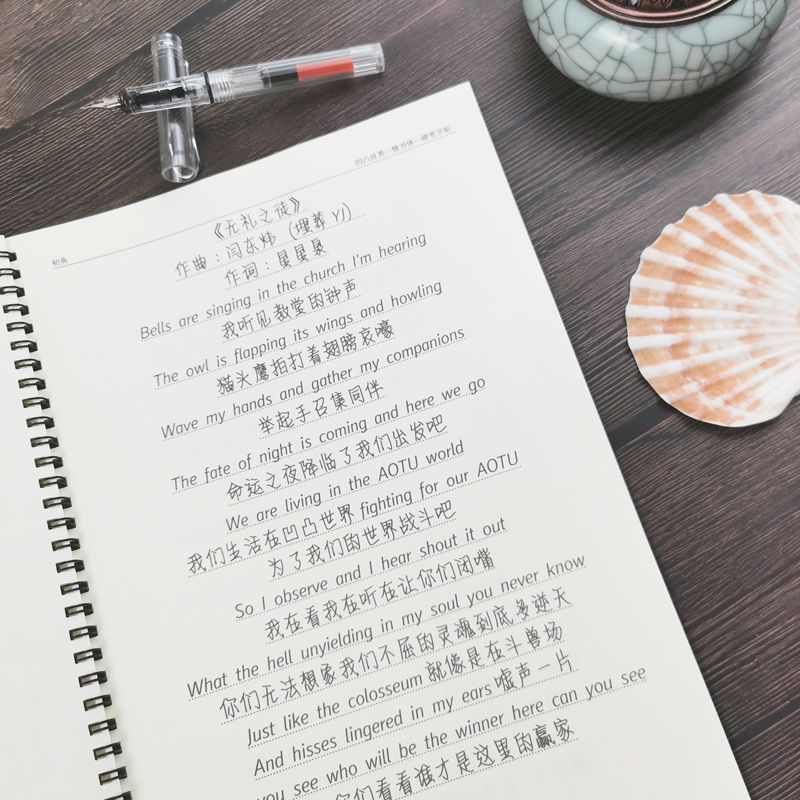 凹凸世界—情书体—硬笔字帖
初奂
《无礼之徒》
作曲：闫东炜（埋葬YJ）
作词：星星泉
Bells are singing in the church I'm hearing
我听见教堂的钟声
The owl is flapping its wings and howling
猫头鹰拍打着翅膀哀嚎
Wave my hands and gather my companions
举起手召集同伴
The fate of night is coming and here we go
命运之夜降临了我们出发吧
We are living in the AOTU world
我们生活在凹凸世界 fighting for our AOTU
为了我们的世界战斗吧
So I observe and I hear shout it out
我在看我在听在让你们闭嘴
What the hell unyielding in my soul you never know
你们无法想象我们不屈的灵魂到底多逆天
Just like the colosseum 就像是在斗兽场
And hisses lingered in my ears 嘘声一片
you see who will be the winner here can you see
你们看看谁才是这里的赢家